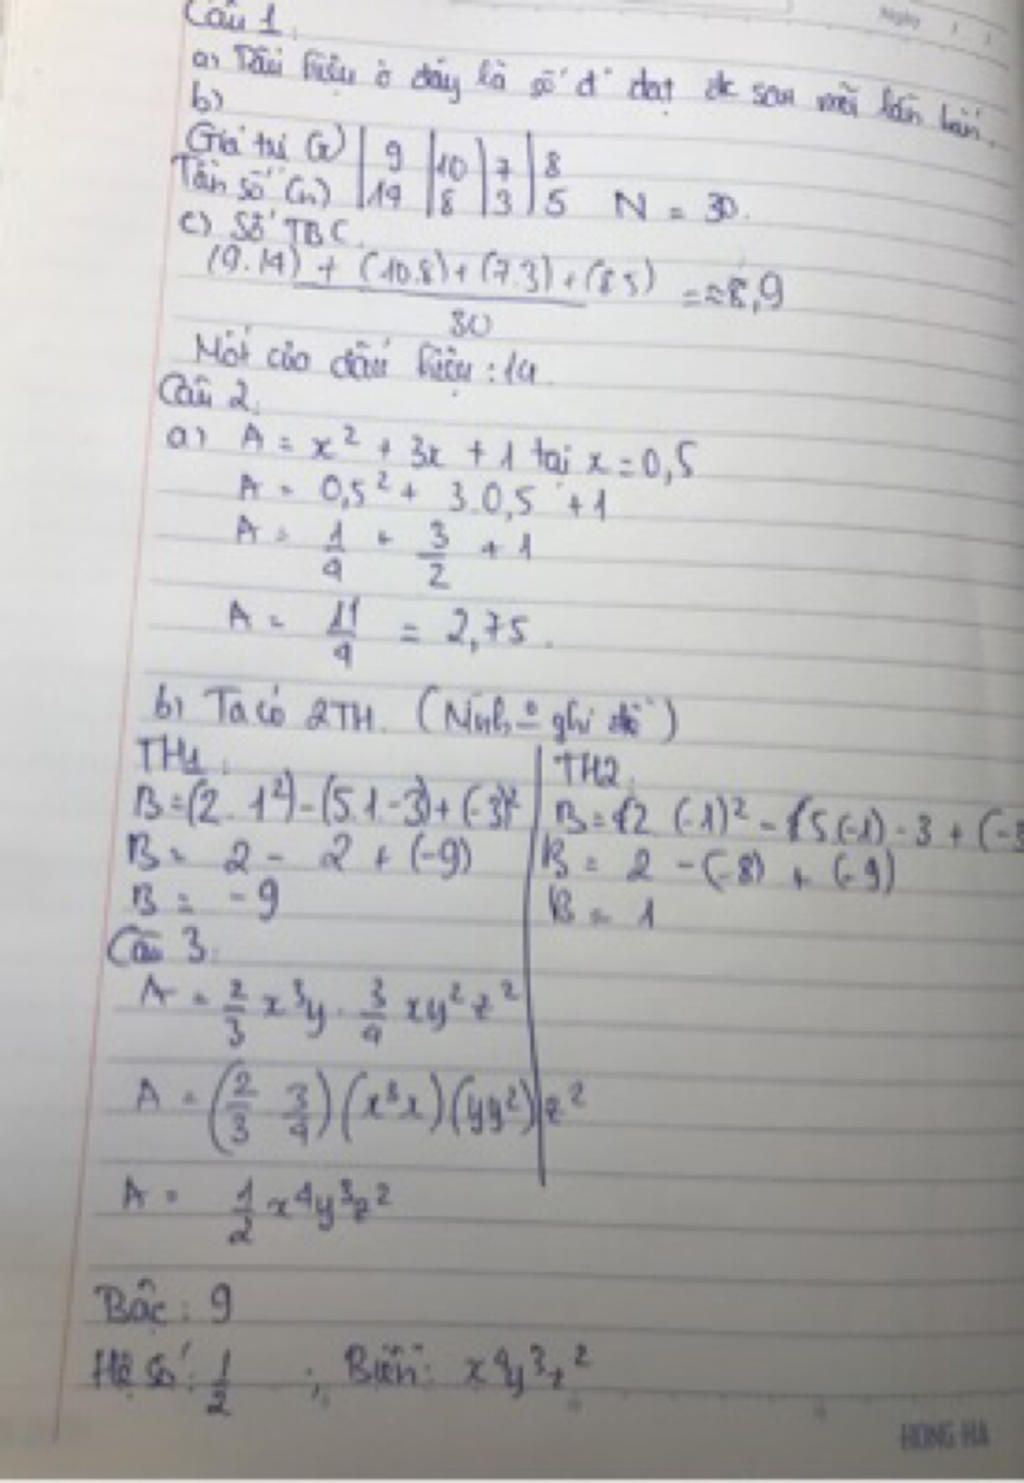 Ngày
Câu 1.
a) Dấu hiệu ở đây là số đ' đạt đc sau mỗi lần bắn.
b)
Giá trị (x) | 9 | 10 | 7 | 8
Tần số (n) | 14 | 8 | 3 | 5 N = 30.
c) Số TBC.
(9.14) + (10.8) + (7.3) + (8.5) / 30 = ≈ 8,9
Mốt của dấu hiệu : 14.
Câu 2.
a) A = x² + 3x + 1 tại x = 0,5
A = 0,5² + 3.0,5 + 1
A = 1/4 + 3/2 + 1
A = 11/4 = 2,75.
b) Ta có 2TH. (Mình ghi đề)
TH1:
B = (2.1²) - (5.1 - 3) + (-3)²
B = 2 - 2 + (-9)
B = -9
TH2:
B = (2 (-1)² - (5(-1) - 3 + (-3
B = 2 - (-8) + (-9)
B = 1
Câu 3.
A = 2/3 x³y . 3/4 xy²z²
A = (2/3 3/4) (x³x) (yy²) z²
A = 1/2 x⁴y³z²
Bậc : 9
Hệ số : 1/2 ; Biến : x⁴y³z²
HONG HA